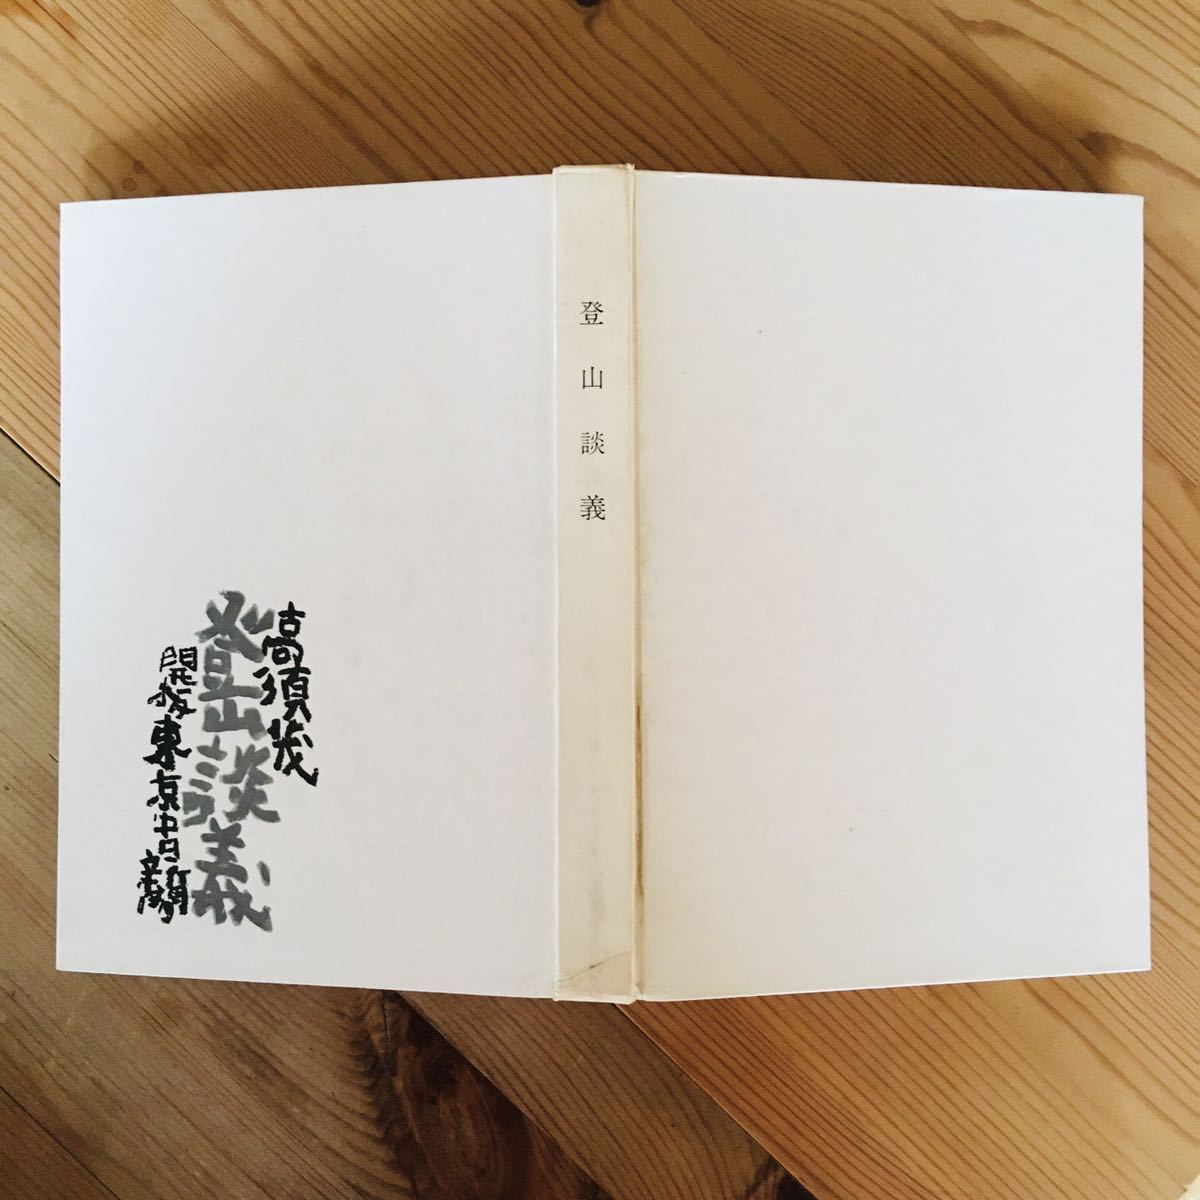 登山談義
高須茂
登山談義
開板東京中日